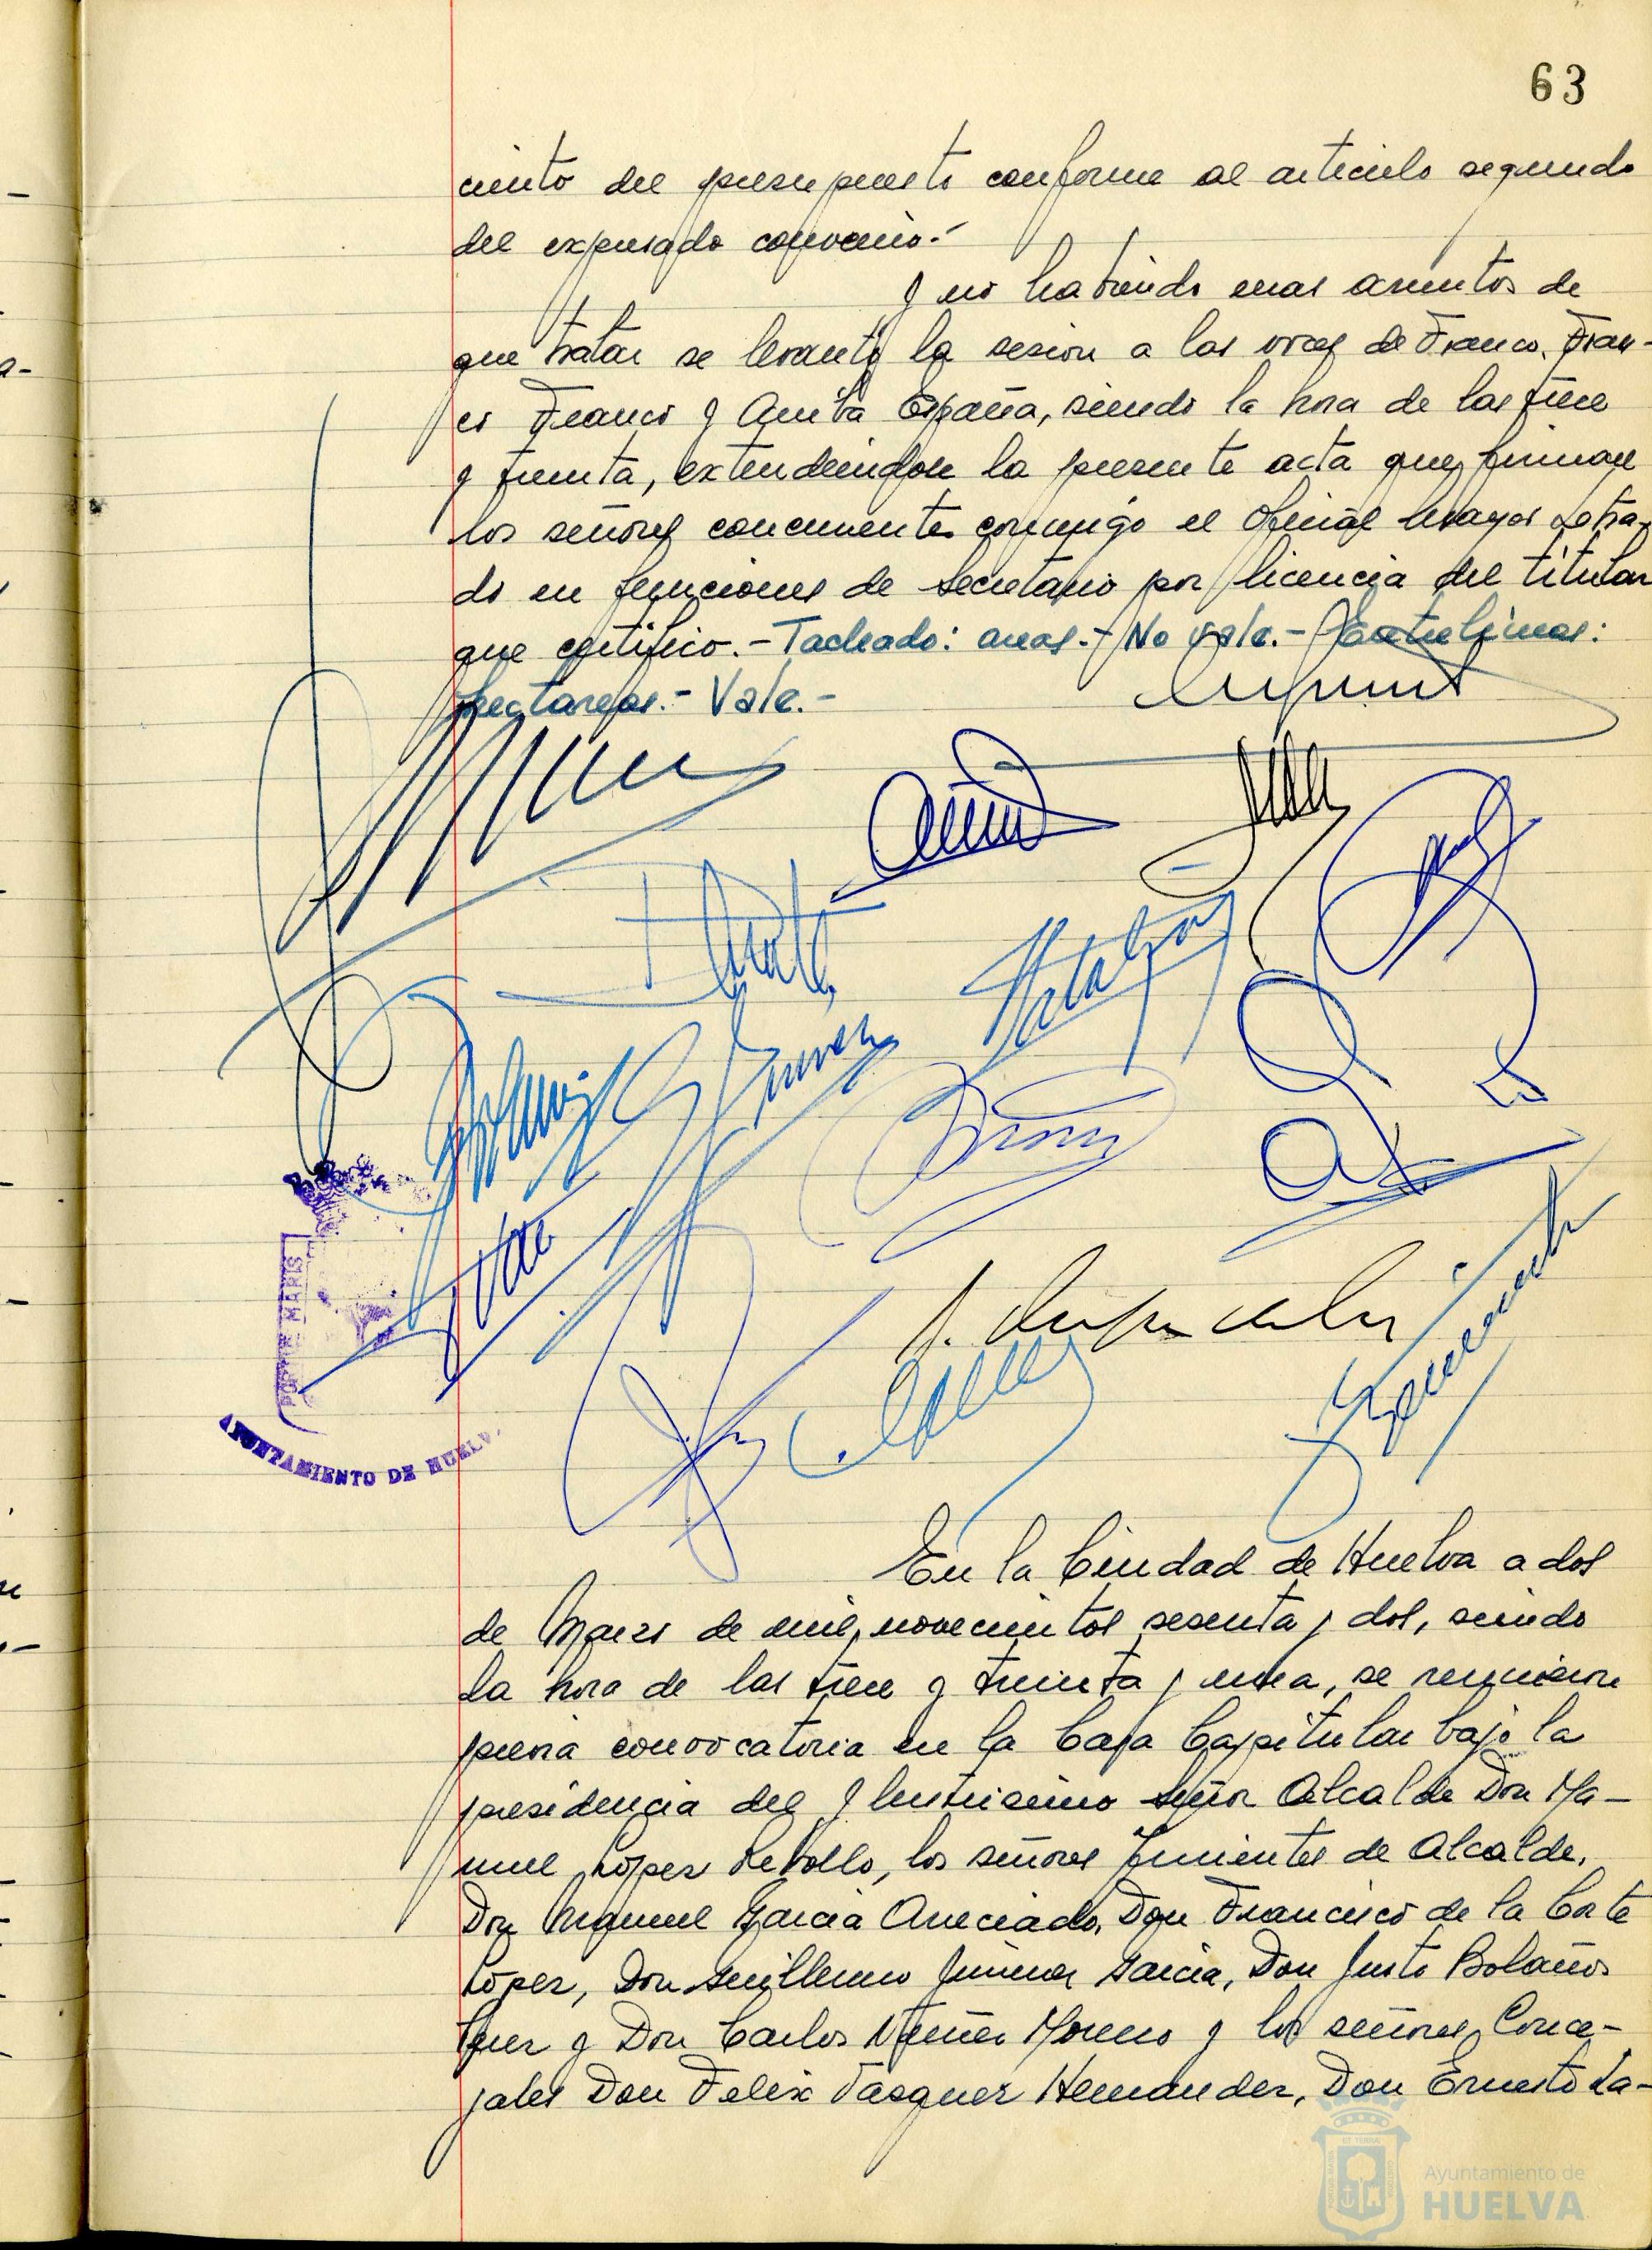 63
ciento del presupuesto conforme al articulo segundo
del expresado convenio.-
Y no habiendo mas asuntos de
que tratar se levantó la sesion a las voces de Franco, Fran-
co Franco y Arriba España, siendo la hora de las trece
y treinta, extendiendose la presente acta que firman
los señores concurrentes conmigo el Oficial Mayor Letra-
do en funciones de Secretario por licencia del titular
que certifico.- Tachado: areas.- No vale.- Entrelineas:
hectareas.- Vale.-
PORTUS MARIS
AYUNTAMIENTO DE HUELVA
En la Ciudad de Huelva a dos
de Marzo de mil novecientos sesenta y dos, siendo
la hora de las trece y treinta y una, se reunieron
previa convocatoria en la Casa Capitular bajo la
presidencia del Ilustrisimo Señor Alcalde Don Ma-
nuel Lopez Rebollo, los señores Tenientes de Alcalde,
Don Manuel Garcia Areciado, Don Francisco de la Corte
Lopez, Don Guillermo Jimenez Garcia, Don Justo Bolaños
y Don Carlos Nuñez Moreno y los señores Conce-
jales Don Felix Vazquez Hernandez, Don Ernesto La-
Ayuntamiento de
HUELVA